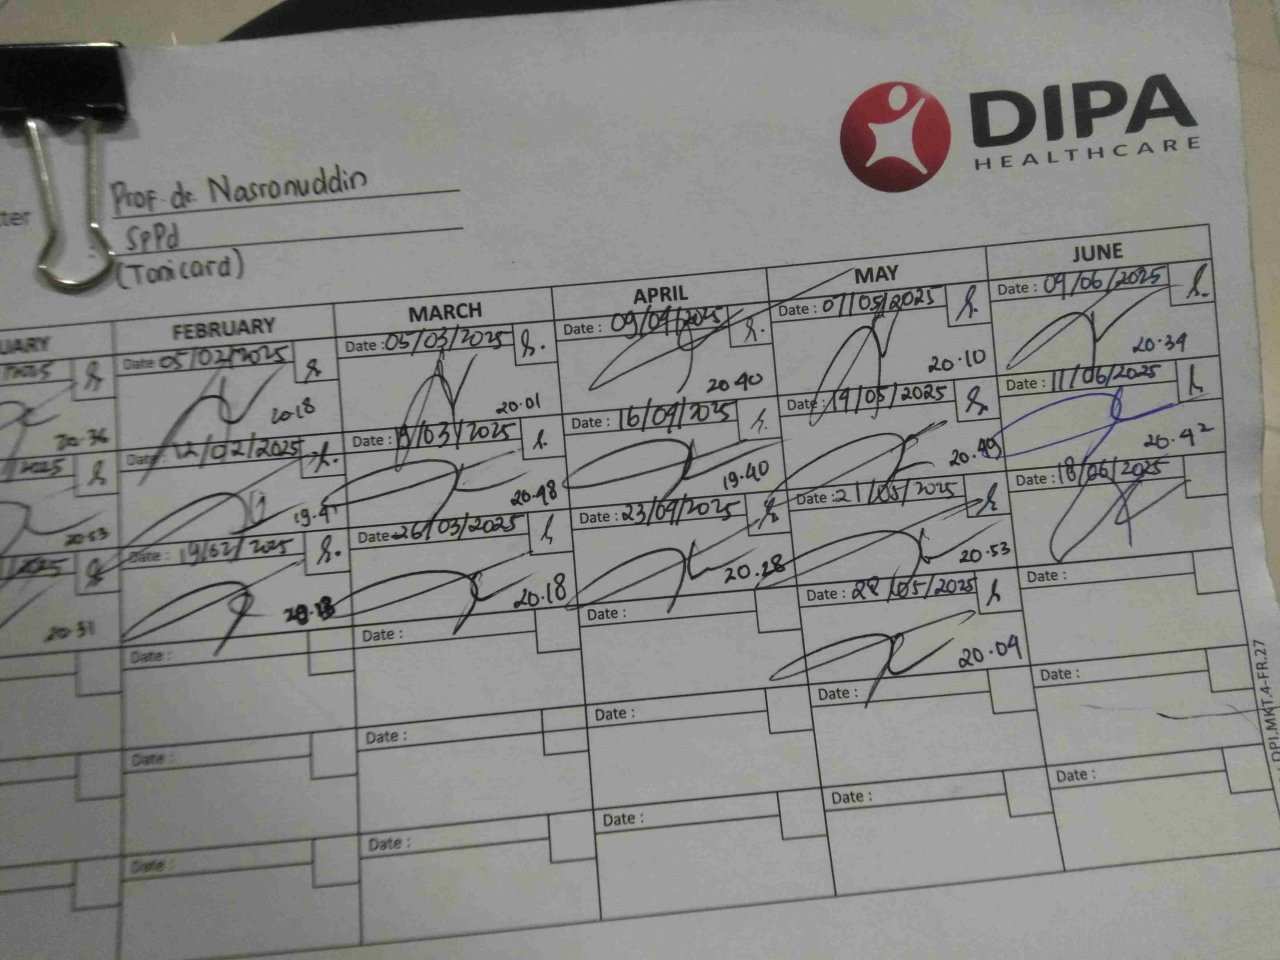 DIPA
HEALTHCARE
Prof. dr. Nasronuddin
SpPd
(Tonicard)
FEBRUARY
MARCH
APRIL
MAY
JUNE
Date 05/02/2025
20.18
Date : 05/03/2025
20.01
Date : 09/04/2025
20.40
Date : 07/05/2025
20.10
Date : 09/06/2025
20.34
2025
20.36
Date : 12/02/2025
Date : /03/2025
20.48
Date : 16/04/2025
19.40
Date : 14/05/2025
20.49
Date : 11/06/2025
20.42
2025
20.53
Date : 19/02/2025
Date 26/03/2025
20.18
Date : 23/04/2025
20.28
Date : 21/05/2025
20.53
Date : 18/06/2025
2025
20.31
Date :
Date :
Date :
Date : 28/05/2025
20.09
Date :
Date :
Date :
Date :
Date :
Date :
Date :
Date :
Date :
Date :
Date :
DPI.MKT.4-FR.27